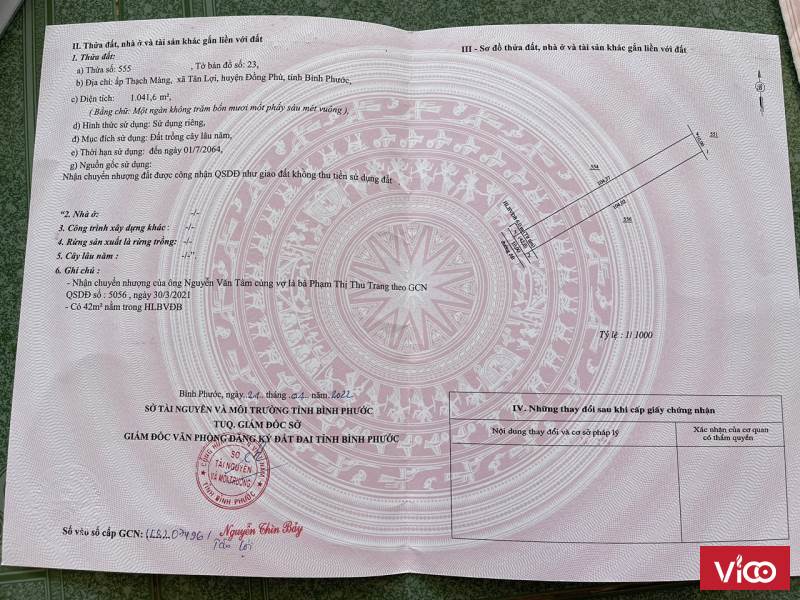 II. Thửa đất, nhà ở và tài sản khác gắn liền với đất
1. Thửa đất:
a) Thửa số: 555 , Tờ bản đồ số: 23,
b) Địa chỉ: ấp Thạch Màng, xã Tân Lợi, huyện Đồng Phú, tỉnh Bình Phước,
c) Diện tích: 1.041,6 m²,
( Bằng chữ: Một ngàn không trăm bốn mươi mốt phẩy sáu mét vuông ),
d) Hình thức sử dụng: Sử dụng riêng,
đ) Mục đích sử dụng: Đất trồng cây lâu năm,
e) Thời hạn sử dụng: đến ngày 01/7/2064,
g) Nguồn gốc sử dụng:
Nhận chuyển nhượng đất được công nhận QSDĐ như giao đất không thu tiền sử dụng đất
"2. Nhà ở: -/-
3. Công trình xây dựng khác : -/-
4. Rừng sản xuất là rừng trồng: -/-
5. Cây lâu năm : -/-".
6. Ghi chú :
- Nhận chuyển nhượng của ông Nguyễn Văn Tâm cùng vợ là bà Phạm Thị Thu Trang theo GCN
QSDĐ số : 5056 , ngày 30/3/2021
- Có 42m² nằm trong HLBVĐB
Bình Phước, ngày 21 tháng 01 năm 2022
SỞ TÀI NGUYÊN VÀ MÔI TRƯỜNG TỈNH BÌNH PHƯỚC
TUQ. GIÁM ĐỐC SỞ
GIÁM ĐỐC VĂN PHÒNG ĐĂNG KÝ ĐẤT ĐAI TỈNH BÌNH PHƯỚC
SỞ
TÀI NGUYÊN
VÀ MÔI TRƯỜNG
TỈNH BÌNH PHƯỚC
Số vào sổ cấp GCN:
Nguyễn Thìn Bảy
Tân Lợi
III - Sơ đồ thửa đất, nhà ở và tài sản khác gắn liền với đất
551
554
104.27
104.02
556
10.00
đường đất
Tỷ lệ : 1/ 1000
IV. Những thay đổi sau khi cấp giấy chứng nhận
Nội dung thay đổi và cơ sở pháp lý
Xác nhận của cơ quan
có thẩm quyền
ViCO